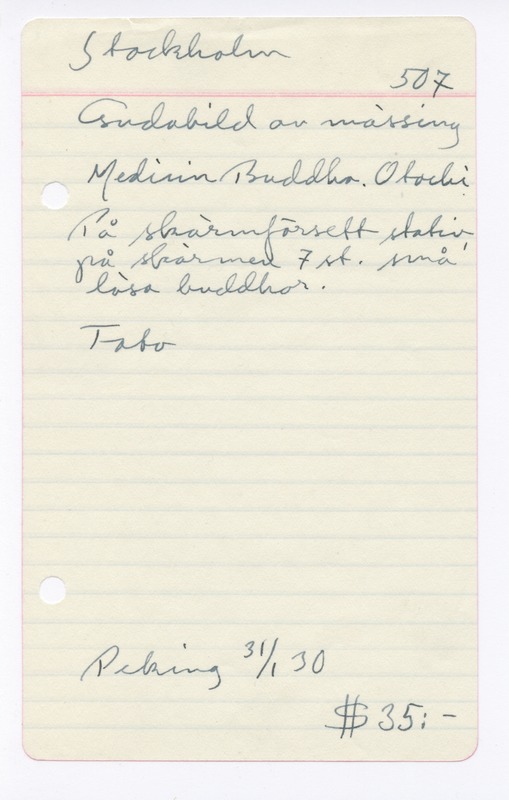 Stockholm
507
Gudabild av mässing
Medicin Buddha. Otochi.
På skärmförsett stativ
på skärmen 7 st. små
lösa buddhor.
Foto
Peking 31/1 30
$ 35:-